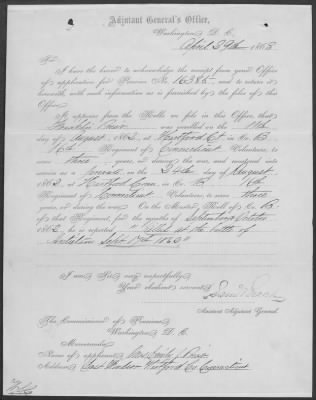 Adjutant General's Office,
Washington, D. C.
April 29th 1863
Sir:
I have the honor to acknowledge the receipt from your Office
of application for Pension No. 16385 and to return it
herewith, with such information as is furnished by the files of this
Office.
It appears from the Rolls on file in this Office, that
was enrolled on the
day of August, 1862, at Hartford Ct in Co. B,
16th Regiment of Connecticut Volunteers, to serve
three years, or during the war, and mustered into
service as a Private on the 24th day of August,
1862, at Hartford Conn, in Co. B, 16th
Regiment of Connecticut Volunteers, to serve three
years, or during the war. On the Muster Roll of Co. B,
of that Regiment, for the months of September & October
1862, he is reported "Killed at the battle of
Antietam Sept 17th 1862"
I am, Sir, very respectfully,
Your obedient servant,
Assistant Adjutant General.
The Commissioner of Pensions,
Washington, D. C.
Memoranda:
Name of applicant, Mrs Emily J.
Address, East Windsor Hartford Co Connecticut